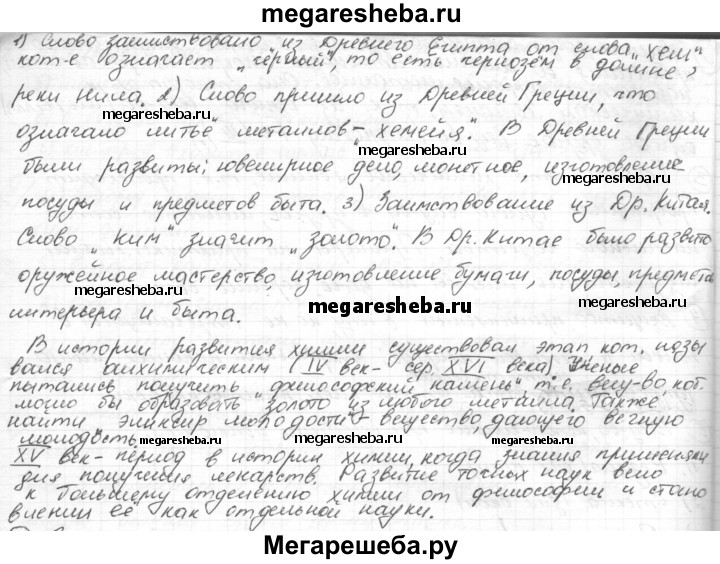 megaresheba.ru
1) Слово заимствовано из Древнего Египта от слова „хем"
кот-е означает „черный", то есть чернозём в долине
реки Нила. 2) Слово пришло из Древней Греции, что
megaresheba.ru
означало литьё металлов – „хемейя". В Древней Греции
megaresheba.ru
были развиты: ювелирное дело, монетное, изготовление
megaresheba.ru
посуды и предметов быта. 3) Заимствование из Др. Китая.
Слово „Ким" значит „золото". В Др. Китае было развито
оружейное мастерство, изготовление бумаги, посуды, предмета
megaresheba.ru
megaresheba.ru
megaresheba.ru
интерьера и быта.
В истории развития химии существовал этап кот. назы
вался алхимическим (IV век – сер. XVI века) Ученые
пытались получить „философский камень" т.е. вещ-во, кот.
могло бы образовать золото из любого металла. Также
найти эликсир молодости – вещество, дающего вечную
молодость
megaresheba.ru megaresheba.ru megaresheba.ru
XV век – период в истории химии, когда знания применяли
для получения лекарств. Развитие точных наук вело
к большему отделению химии от философии и стано
влении её как отдельной науки.
Мегарешеба.ру